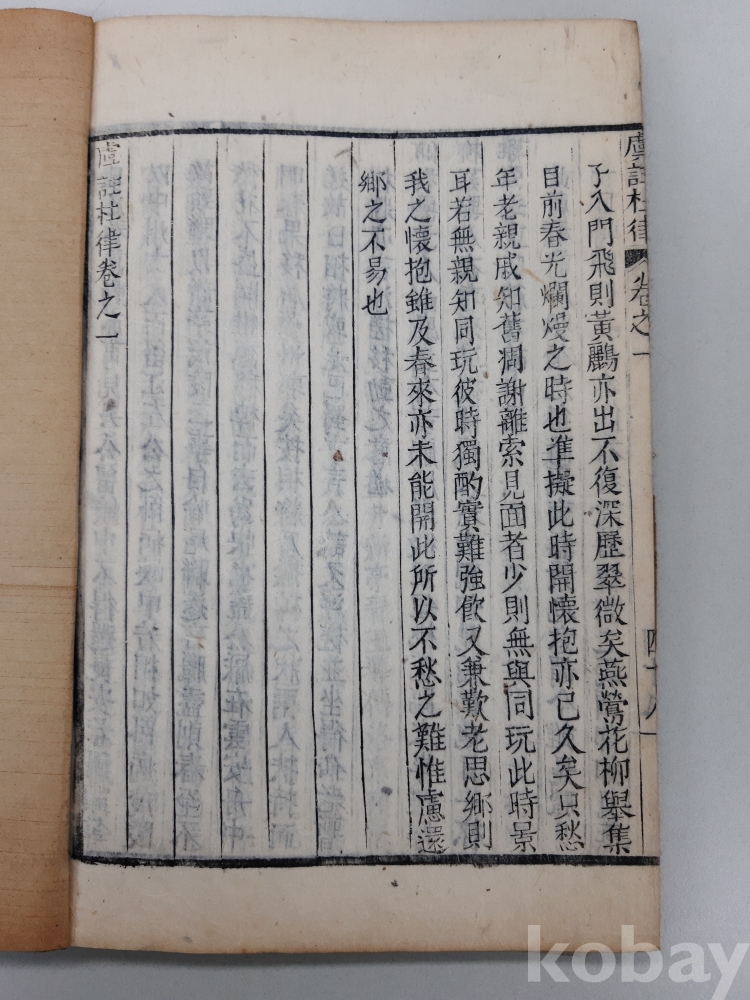 虞註杜律 卷之一 四十八
子入門飛則黃鸝亦出不復深歷翠微矣燕鶯花柳舉集
目前春光爛熳之時也準擬此時開懷抱亦已久矣只愁
年老親戚知舊凋謝離索見面者少則無與同玩此時景
耳若無親知同玩彼時獨酌實難強飲又兼歎老思鄉則
我之懷抱雖及春來亦未能開此所以不愁之難惟慮還
鄉之不易也
虞註杜律卷之一
kobay